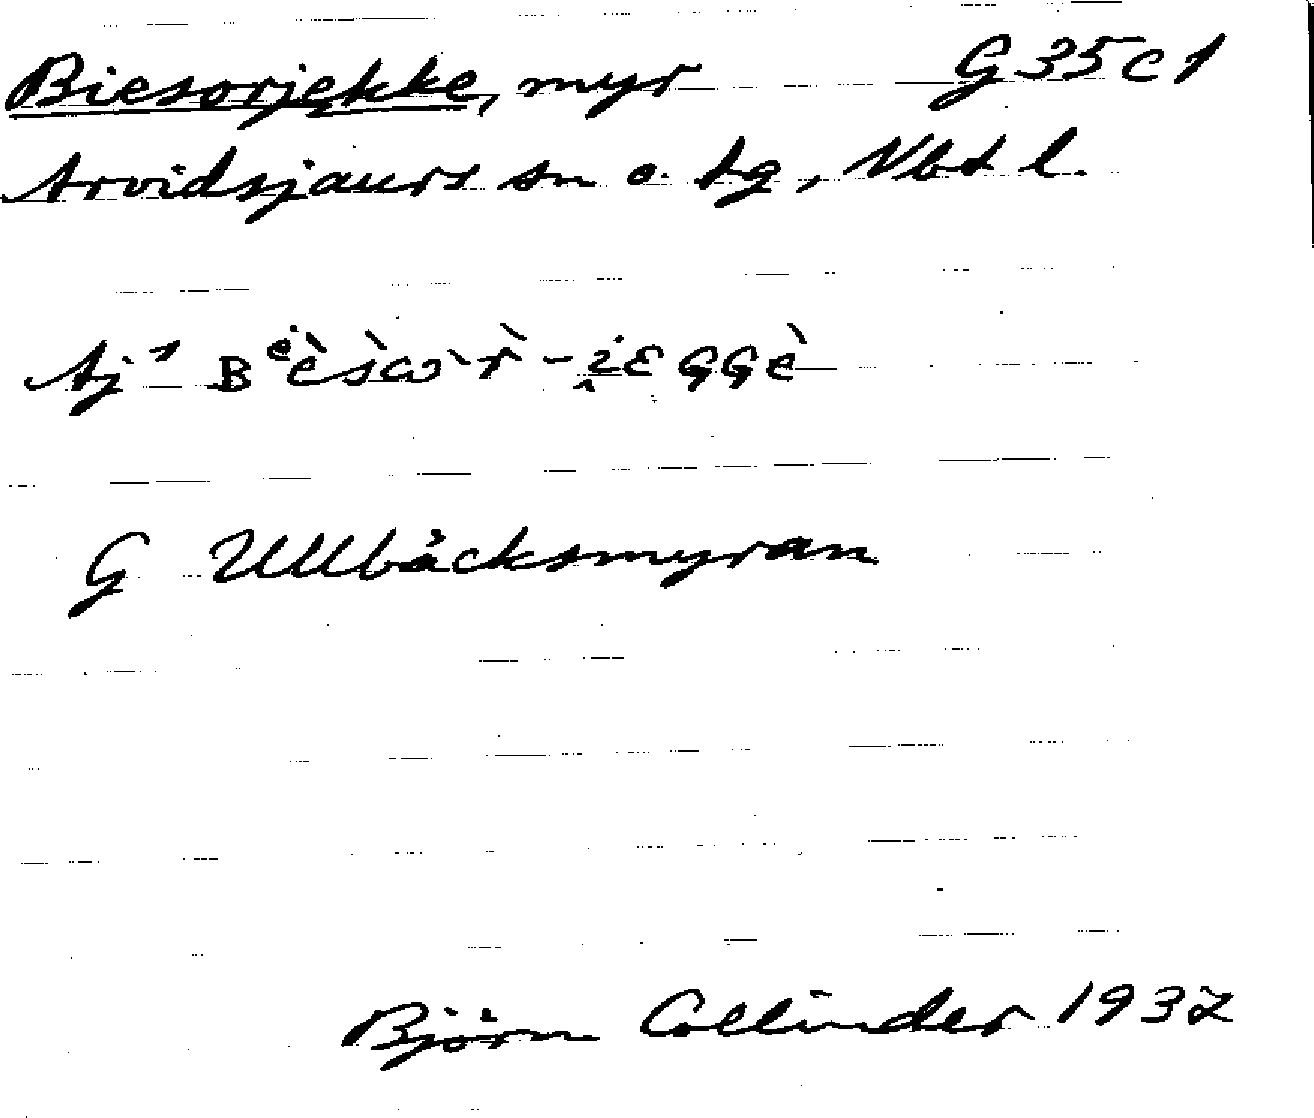 Biesorjekke, myr G 35 c 1
Arvidsjaurs sn o. tg, Vbt l.
Aj 1
G Ullbäcksmyran
Björn Collinder 1932